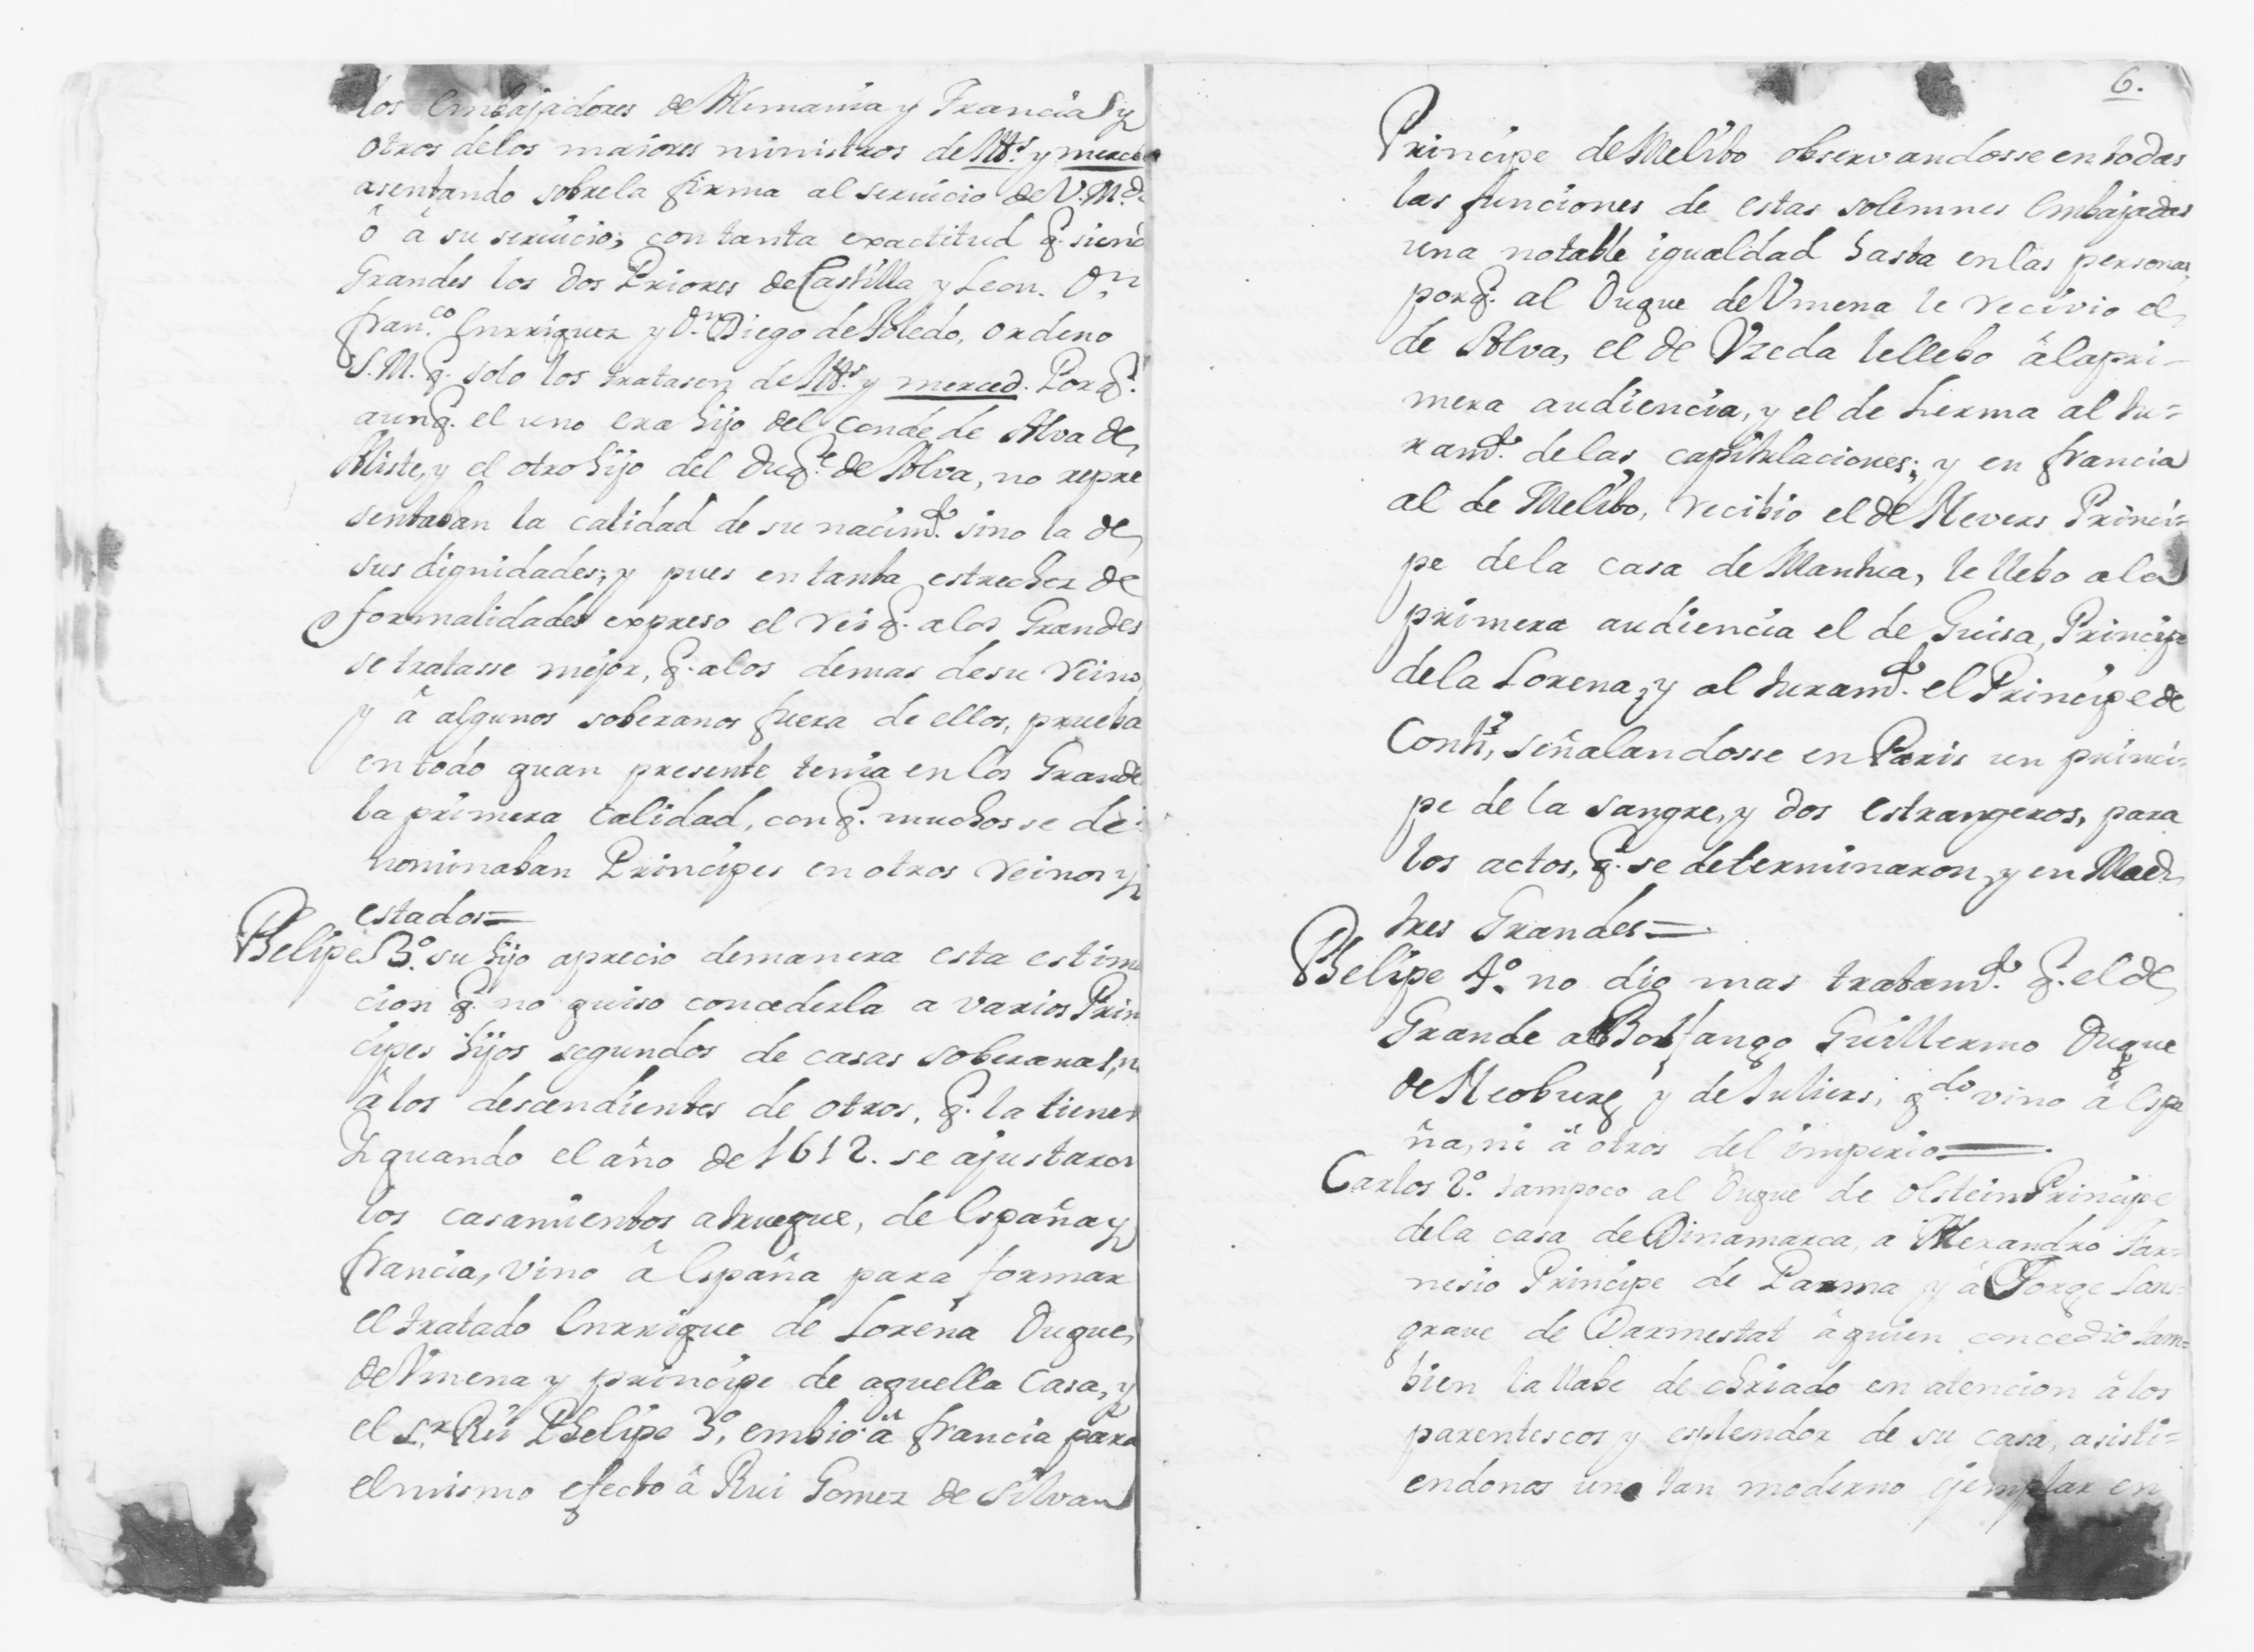 los Embajadores de Alemania y Francia y
otros delos maiores ministros de Ill.s y merced
asentando sobrela firma al seruicio de V. M.d
ô â su seruicio; con tanta exactitud q.e siend
Grandes los dos Priores de Castilla y Leon. D.n
fran.co Enrriquez y D.n Diego de Toledo, ordeno
S. M. q. solo los tratasen de Ill.s y merced. Porq.e
aunq. el uno era hijo del Conde de Alva de
Aliste, y el otro hijo del Duq.e de Alva, no repre
sentaban la calidad de su nacim.to sino la de
sus dignidades; y pues en tanta estrechez de
formalidades expreso el rei q. alos Grandes
se tratasse mejor, q. alos demas desu reino,
y â algunos soberanos fuera de ellos, prueba
en todo quan presente tenia en los Grande
la primera Calidad, con q. muchos se de
nominaban Principes en otros reinos y
estados=
Phelipe 3.º su hijo aprecio demanera esta estima
cion q. no quiso concederla a varios Prin
cipes hijos segundos de casas soberanas, n
âlos descendientes de otros, q. la tienen
Y quando el año de 1612. se ajustaron
los casamientos atrueque, de España y
francia, vino â España para formar
el tratado Enrrique de Lorena Duque,
de Vmena y principe de aquella Casa, y
el S.r Rei Phelipe 3.º, embio â francia para
el mismo efecto â Rui Gomez de Silva
6.
Principe de Melito observandosse en todas
las funciones de estas solemnes Embajadas
una notable igualdad hasta en las personas,
porq. al Duque de Vmena le recivio el
de Alva, el de Vzeda le llebo âlapri-
mera audiencia, y el de Lerma al Ju=
ram.to delas capitulaciones; y en francia
al de Melito, recibio el de Nevers Princi=
pe dela casa de Mantua, le llebo a la
primera audiencia el de Guisa, Principe
dela Lorena, y al Juram.to el Principe de
Conti, señalandosse en Paris un princi=
pe de la sangre, y dos estrangeros, para
los actos, q. se determinaron, y en Mad.
tres Grandes=
Phelipe 4.º no dio mas tratam.to q. el de
Grande a Bolfango Guillermo Duque
de Neoburg y de Juliers, q.do vino â Espa
ña, ni â otros del imperio=
Carlos 2.º tampoco al Duque de Olstein Principe
dela casa de Dinamarca, a Alexandro Far=
nesio Principe de Parma y â Jorge Lans=
grave de Darmestat âquien concedio tam=
bien la llabe de chriado en atencion âlos
parentescos y esplendor de su casa, asisti=
endonos uno tan moderno ejemplar en